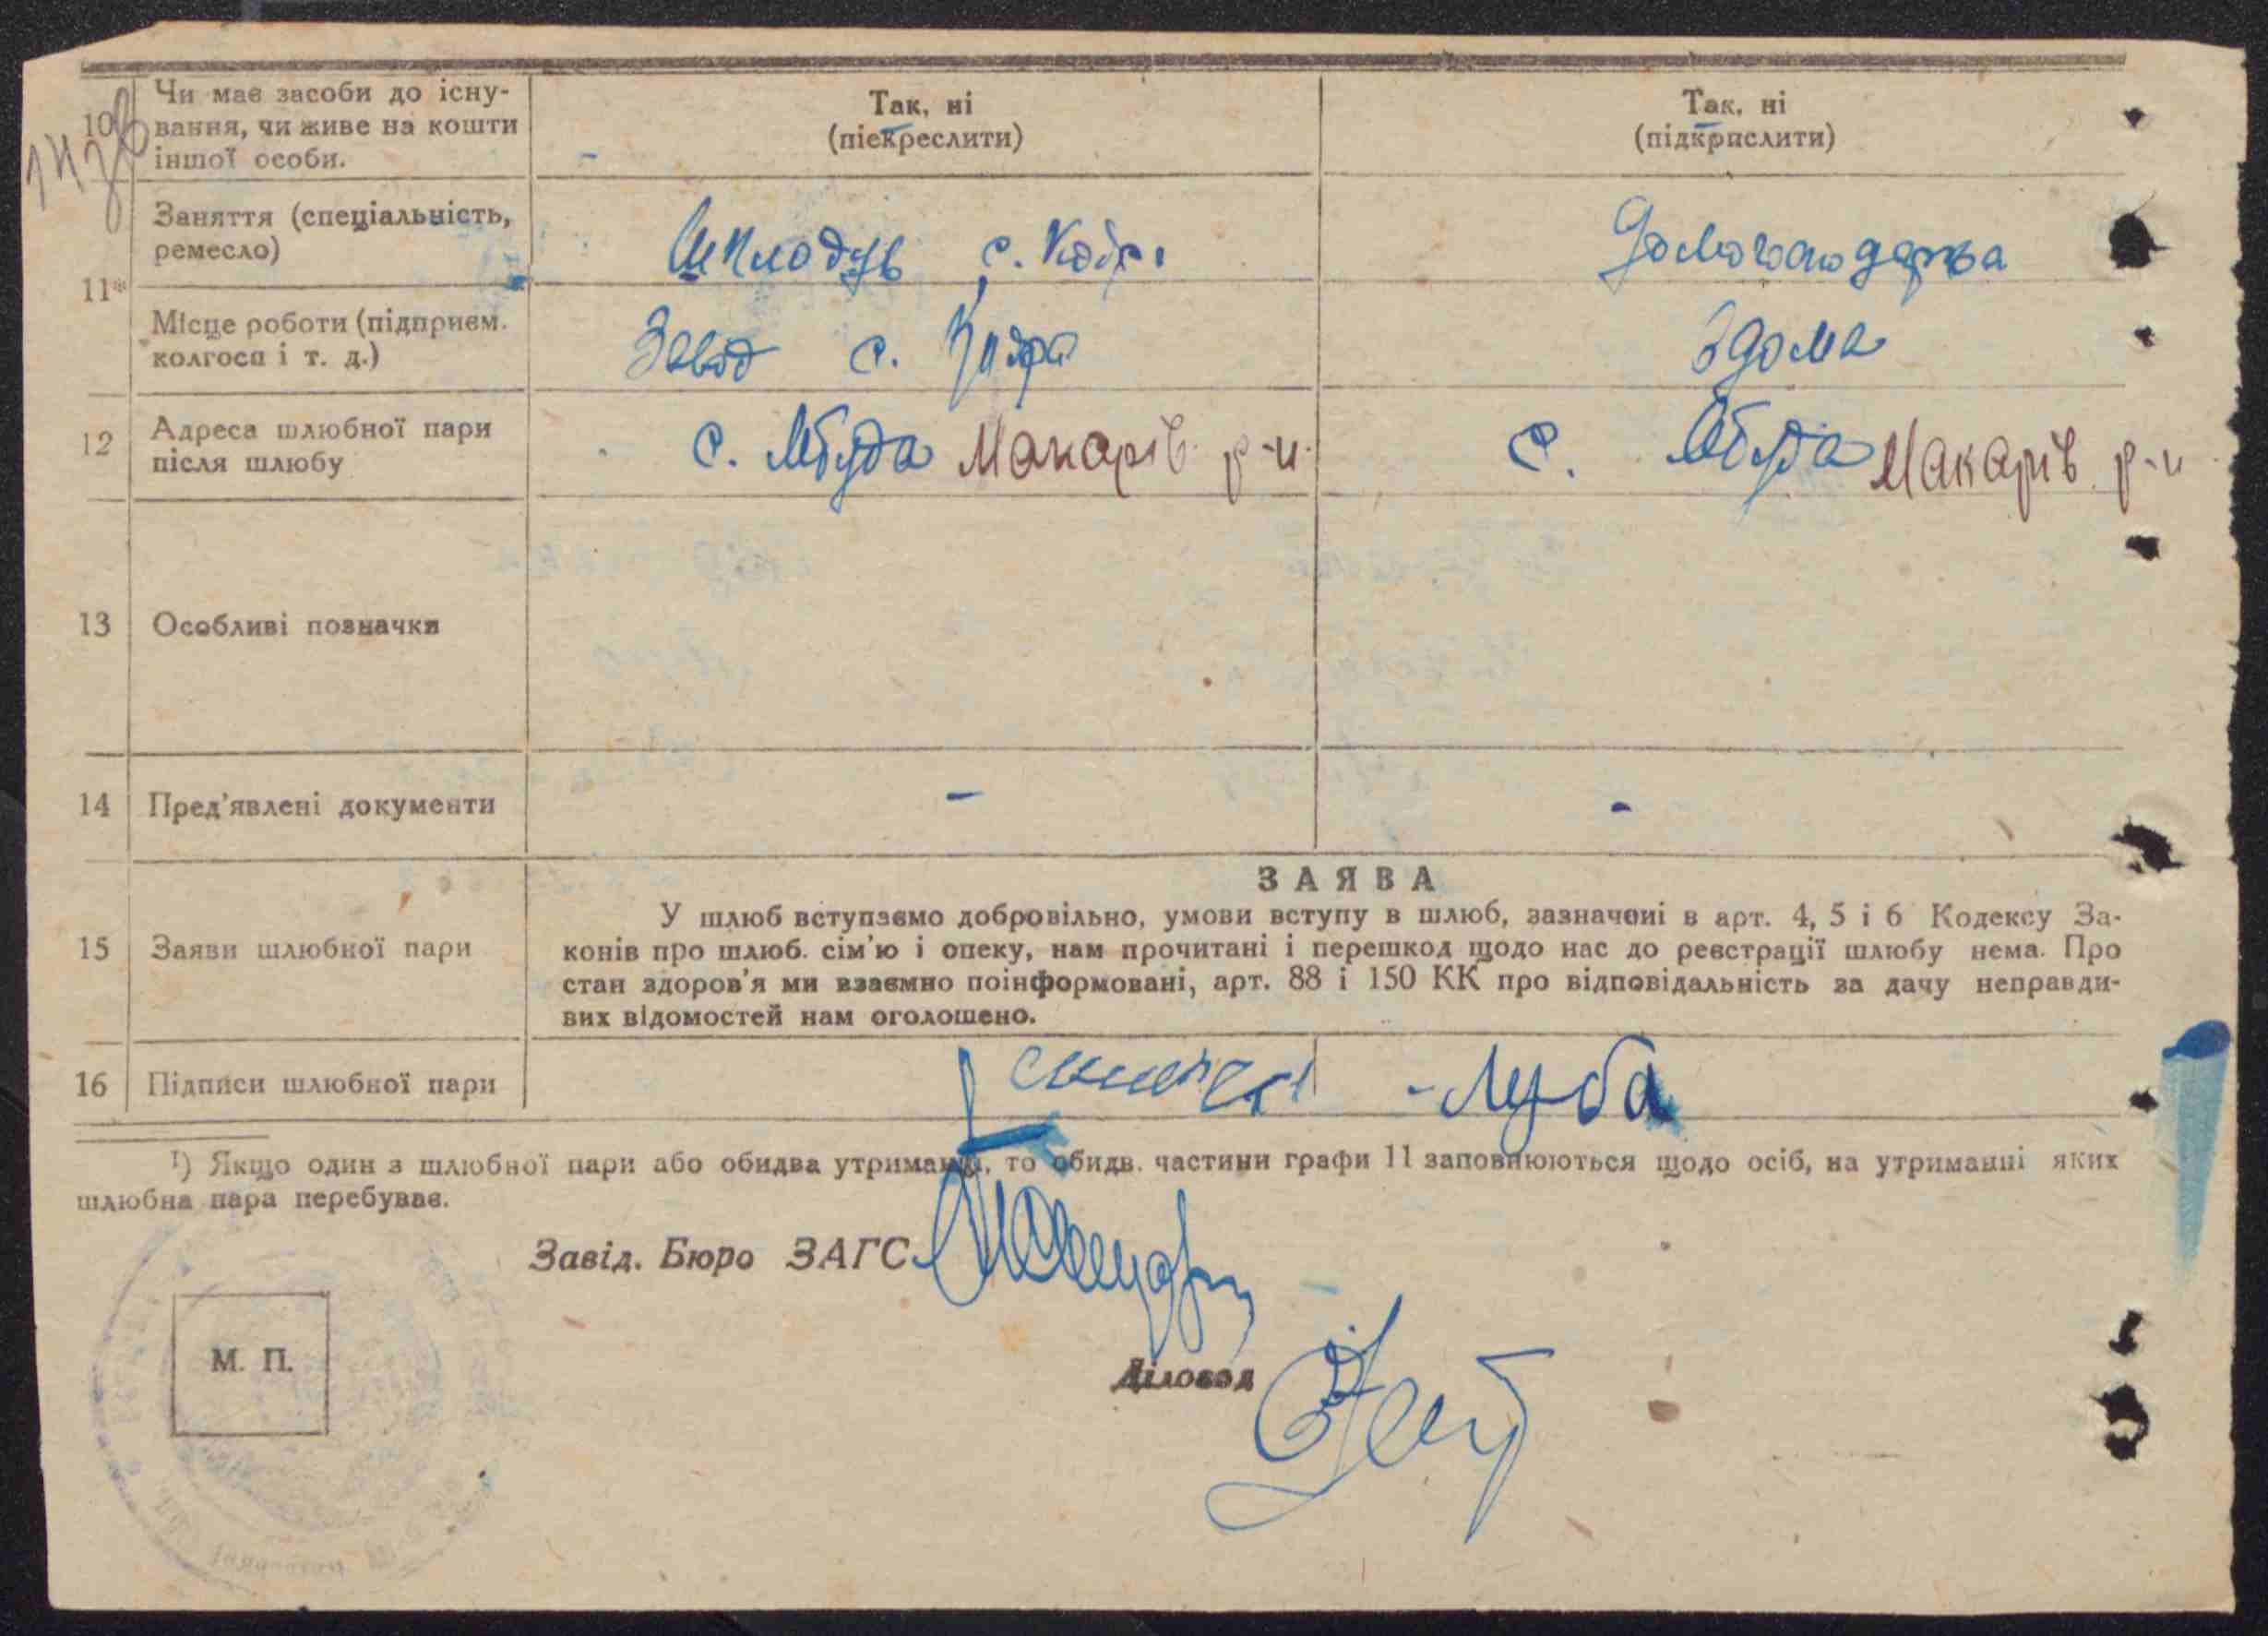 10
Чи має засоби до існу-
вання, чи живе на кошти
іншої особи.
Так, ні
(піекреслити)
Так, ні
(підкрислити)
11*
Заняття (спеціальність,
ремесло)
с.
Домогосподарка
Місце роботи (підприєм.
колгосп і т. д.)
Завод с. Кодра
Здома
12
Адреса шлюбної пари
після шлюбу
с. Мбуда Макарів р-н
с. Мбуда Макарів р-н
13
Особливі позначки
14
Пред'явлені документи
-
-
15
Заяви шлюбної пари
ЗАЯВА
У шлюб вступаємо добровільно, умови вступу в шлюб, зазначені в арт. 4, 5 і 6 Кодексу За-
конів про шлюб. сім'ю і опеку, нам прочитані і перешкод щодо нас до реєстрації шлюбу нема. Про
стан здоров'я ми взаємно поінформовані, арт. 88 і 150 КК про відповідальність за дачу неправди-
вих відомостей нам оголошено.
16
Підписи шлюбної пари
¹) Якщо один з шлюбної пари або обидва утриманці, то обидв. частини графи 11 заповнюються щодо осіб, на утриманні яких
шлюбна пара перебуває.
Завід. Бюро ЗАГС
М. П.
Діловод